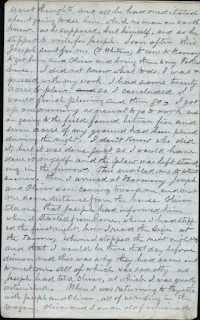 secret thought, and all he had meditated
about going to see him, which no man on earth
knew, as he supposed, but himself, and so he
stopped to see Joseph. Soon after this
Joseph sent for me (D. Whitmer) to come to Harmony
to get him and Oliver and bring them to my father's
house. I did not know what to do, I was
pressed with my work. I had some 20 acres
to plow, so I concluded I
would finish plowing and then go. I got
up one morning as usual to go to work and
on going to the field found between five and
seven acres of my ground had been plowed
during the night. I don't know who did
it; but it was done just as I would have
done it myself and the plow was left standing
in the furrow. This enabled me to start
sooner. When I arrived at Harmony Joseph
and Oliver were coming toward me and met
me some distance from the house. Oliver
told me that Joseph had informed him
when I started from home, where I had stopped
the first night, how I read the sign at
the tavern, where I stopped the next night
and that I would be there that day before
dinner and this was why they had come out
to meet me all of which was exactly as
Joseph had told Oliver, at which I was greatly
astonished. When I was returning to Fayette
with Joseph and Oliver, all of us riding in the
wagon, Oliver and I on an old fashioned